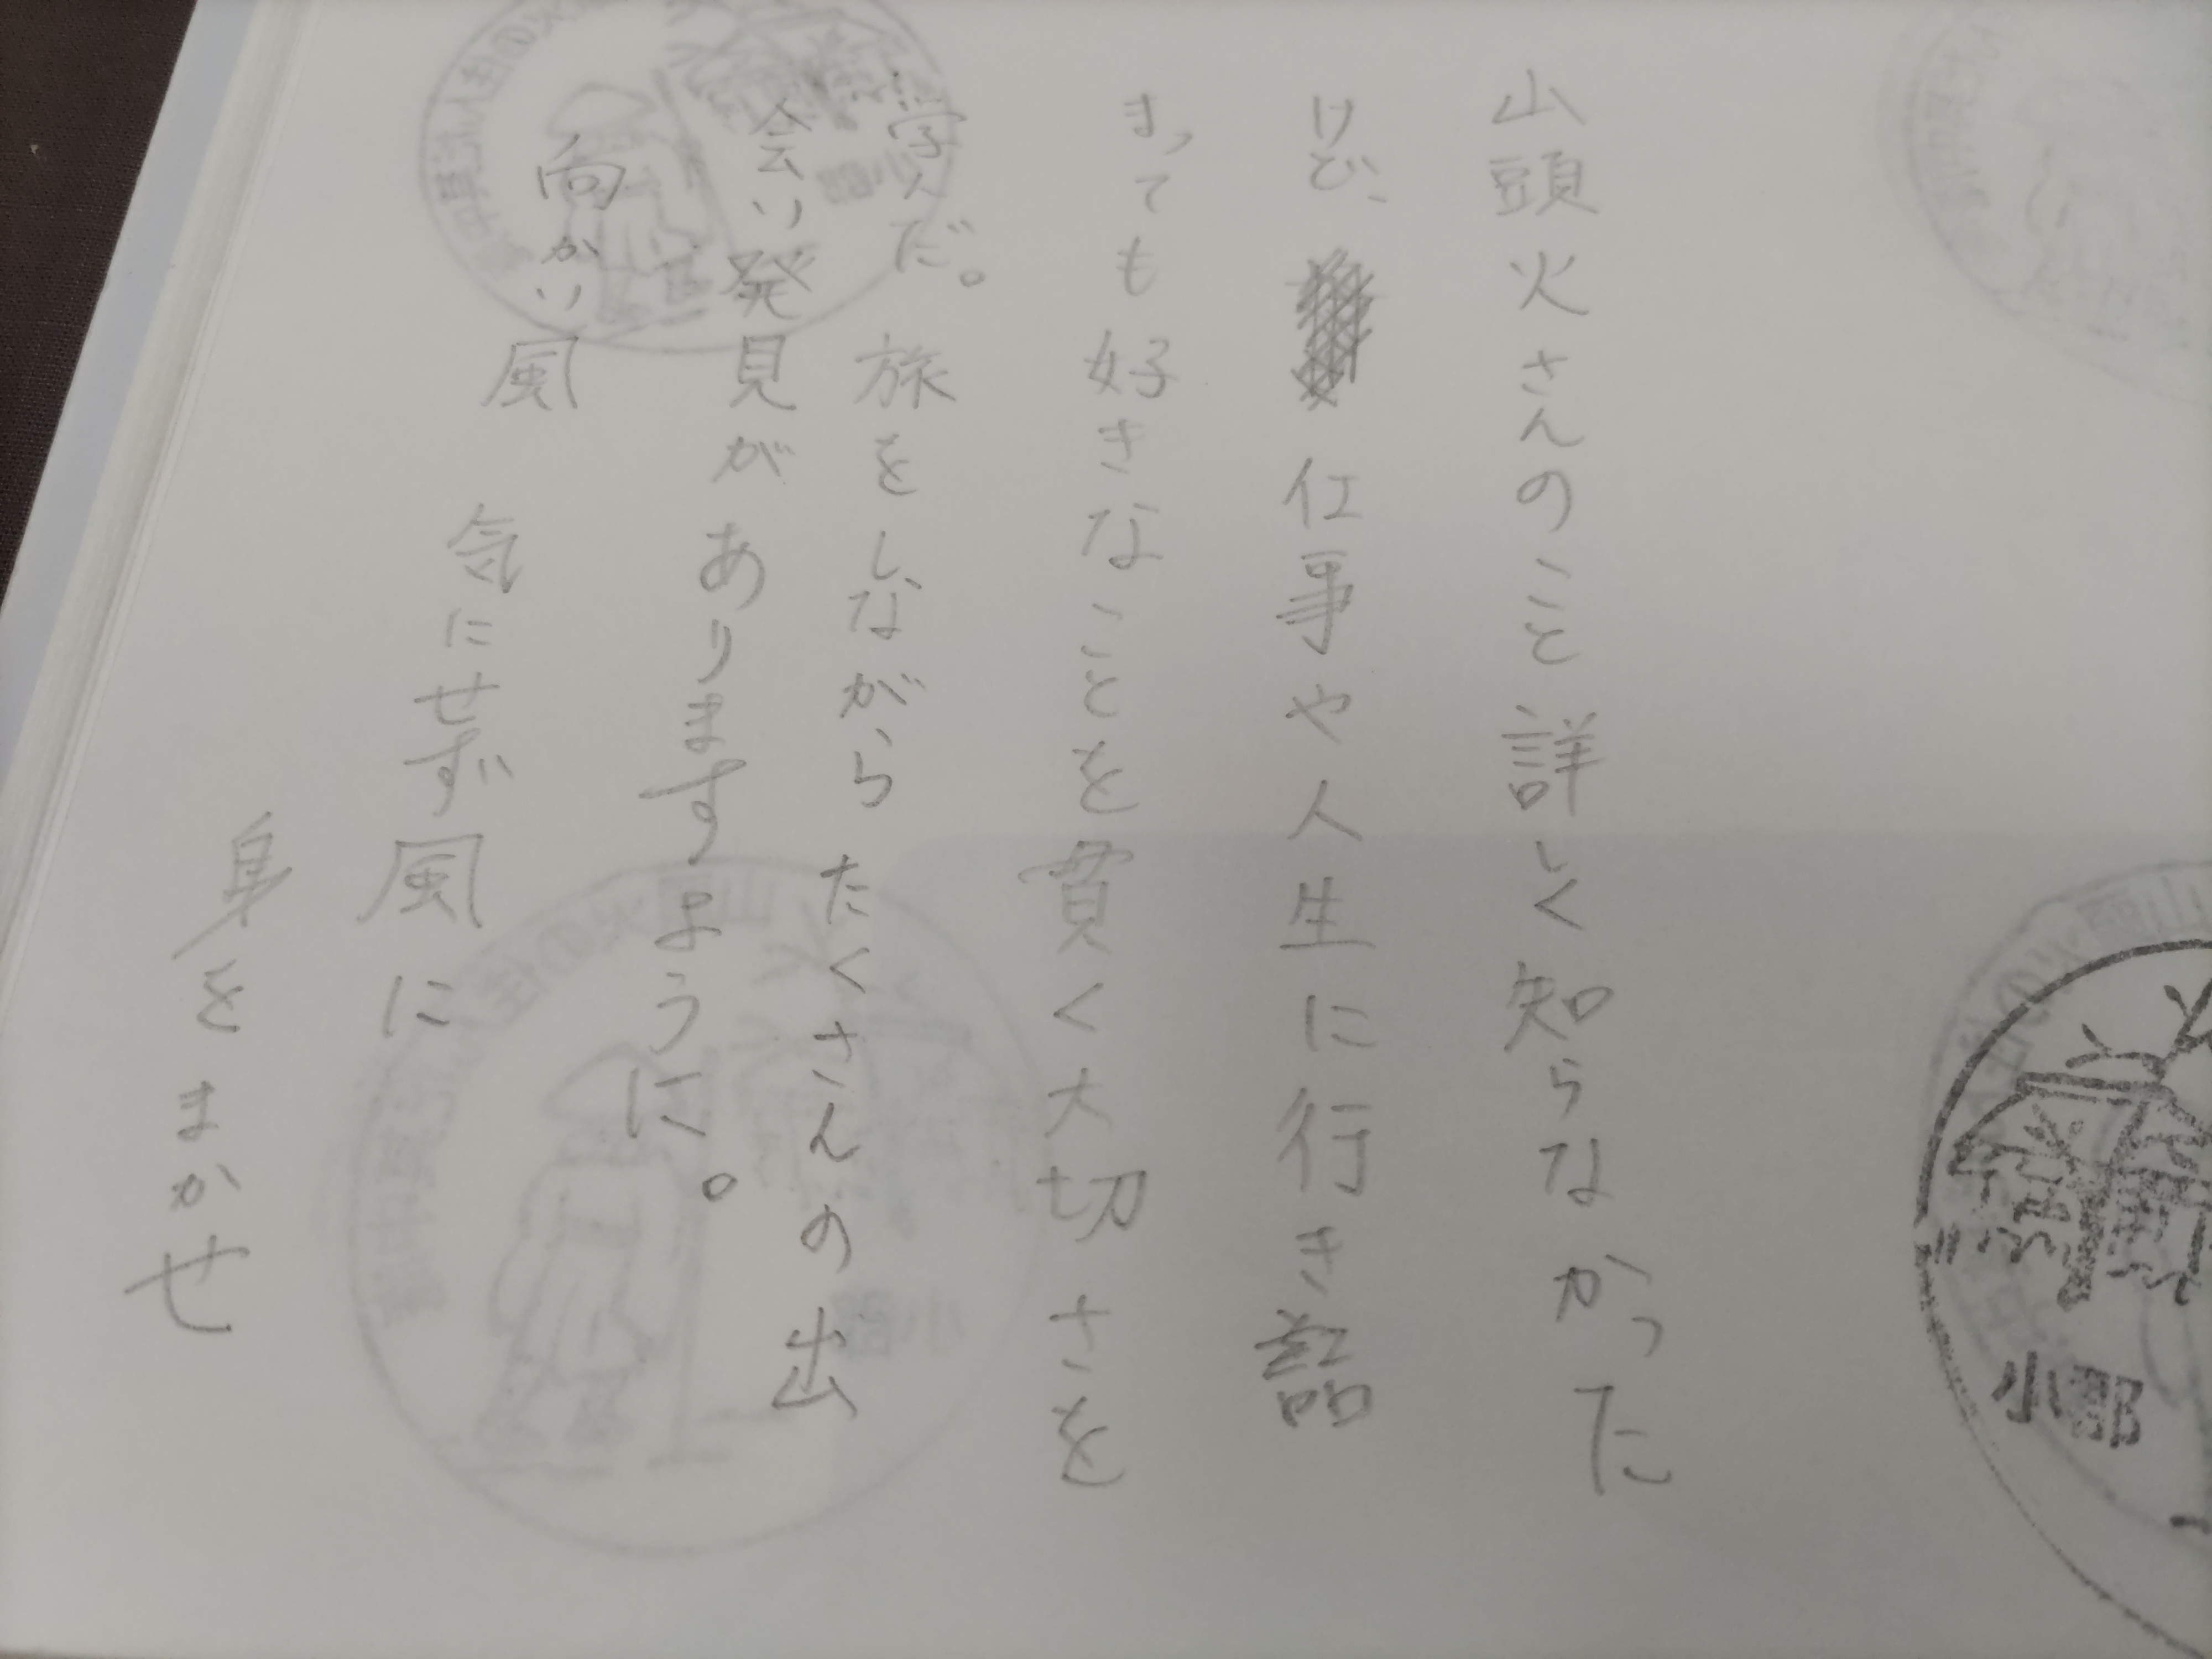 山頭火さんのこと詳しく知らなかった
けど、仕事や人生に行き詰
まっても好きなことを貫く大切さを
学んだ。旅をしながらたくさんの出
会い発見がありますように。
向かい風 気にせず風に
身をまかせ
小郡